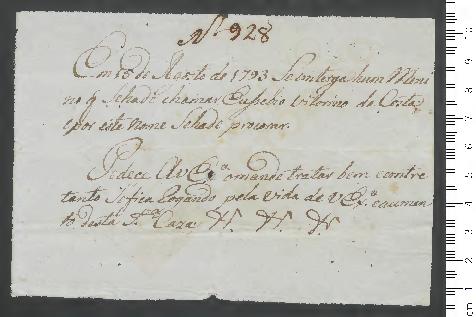 Nº 928
Em 18 de Agosto de 1793 Se entrega hum Meni
no q̃ Sehade chamar Euzebio Vitorino da Costa,
e por este nome Sehade procurar.
Pedece A V Exª omande tratar bem comtre
tanto Sefica Rogando pela vida de V Exª eaumen
to desta Stª Caza